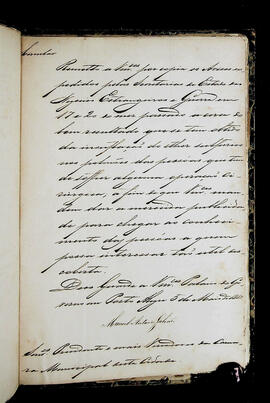 Circular
Remetto a Vm.ces por copia os Avisos ex
pedidos pelas Secretarias de Estado dos
Negocios Estrangeiros e Guerra em
17 e 20 de mez passado a cerca do
bom resultado que se tem obtido
da do ether sulfurico
nas pessoas que tem
de soffrer alguma operação Ci
rurgica, a fim de que
dem dar a necessaria publicidade
para chegar ao conheci
mento das pessoas a quem
possa interessar tão util des
coberta.
Deos Guarde a Vm.ces Palacio do Go
verno em Porto Alegre 5 de Maio de
Manoel Antonio Galvão
Snr.es Presidente e mais Vereadores da Cama
ra Municipal desta Cidade